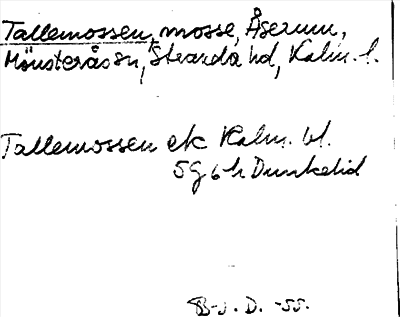 Tallemossen, mosse, Åserum,
Mönsterås sn, Stranda hd, Kalm. l.
Tallemossen ek Kalm. bl.
5G 6h Dunketid
B-s. D. -55.